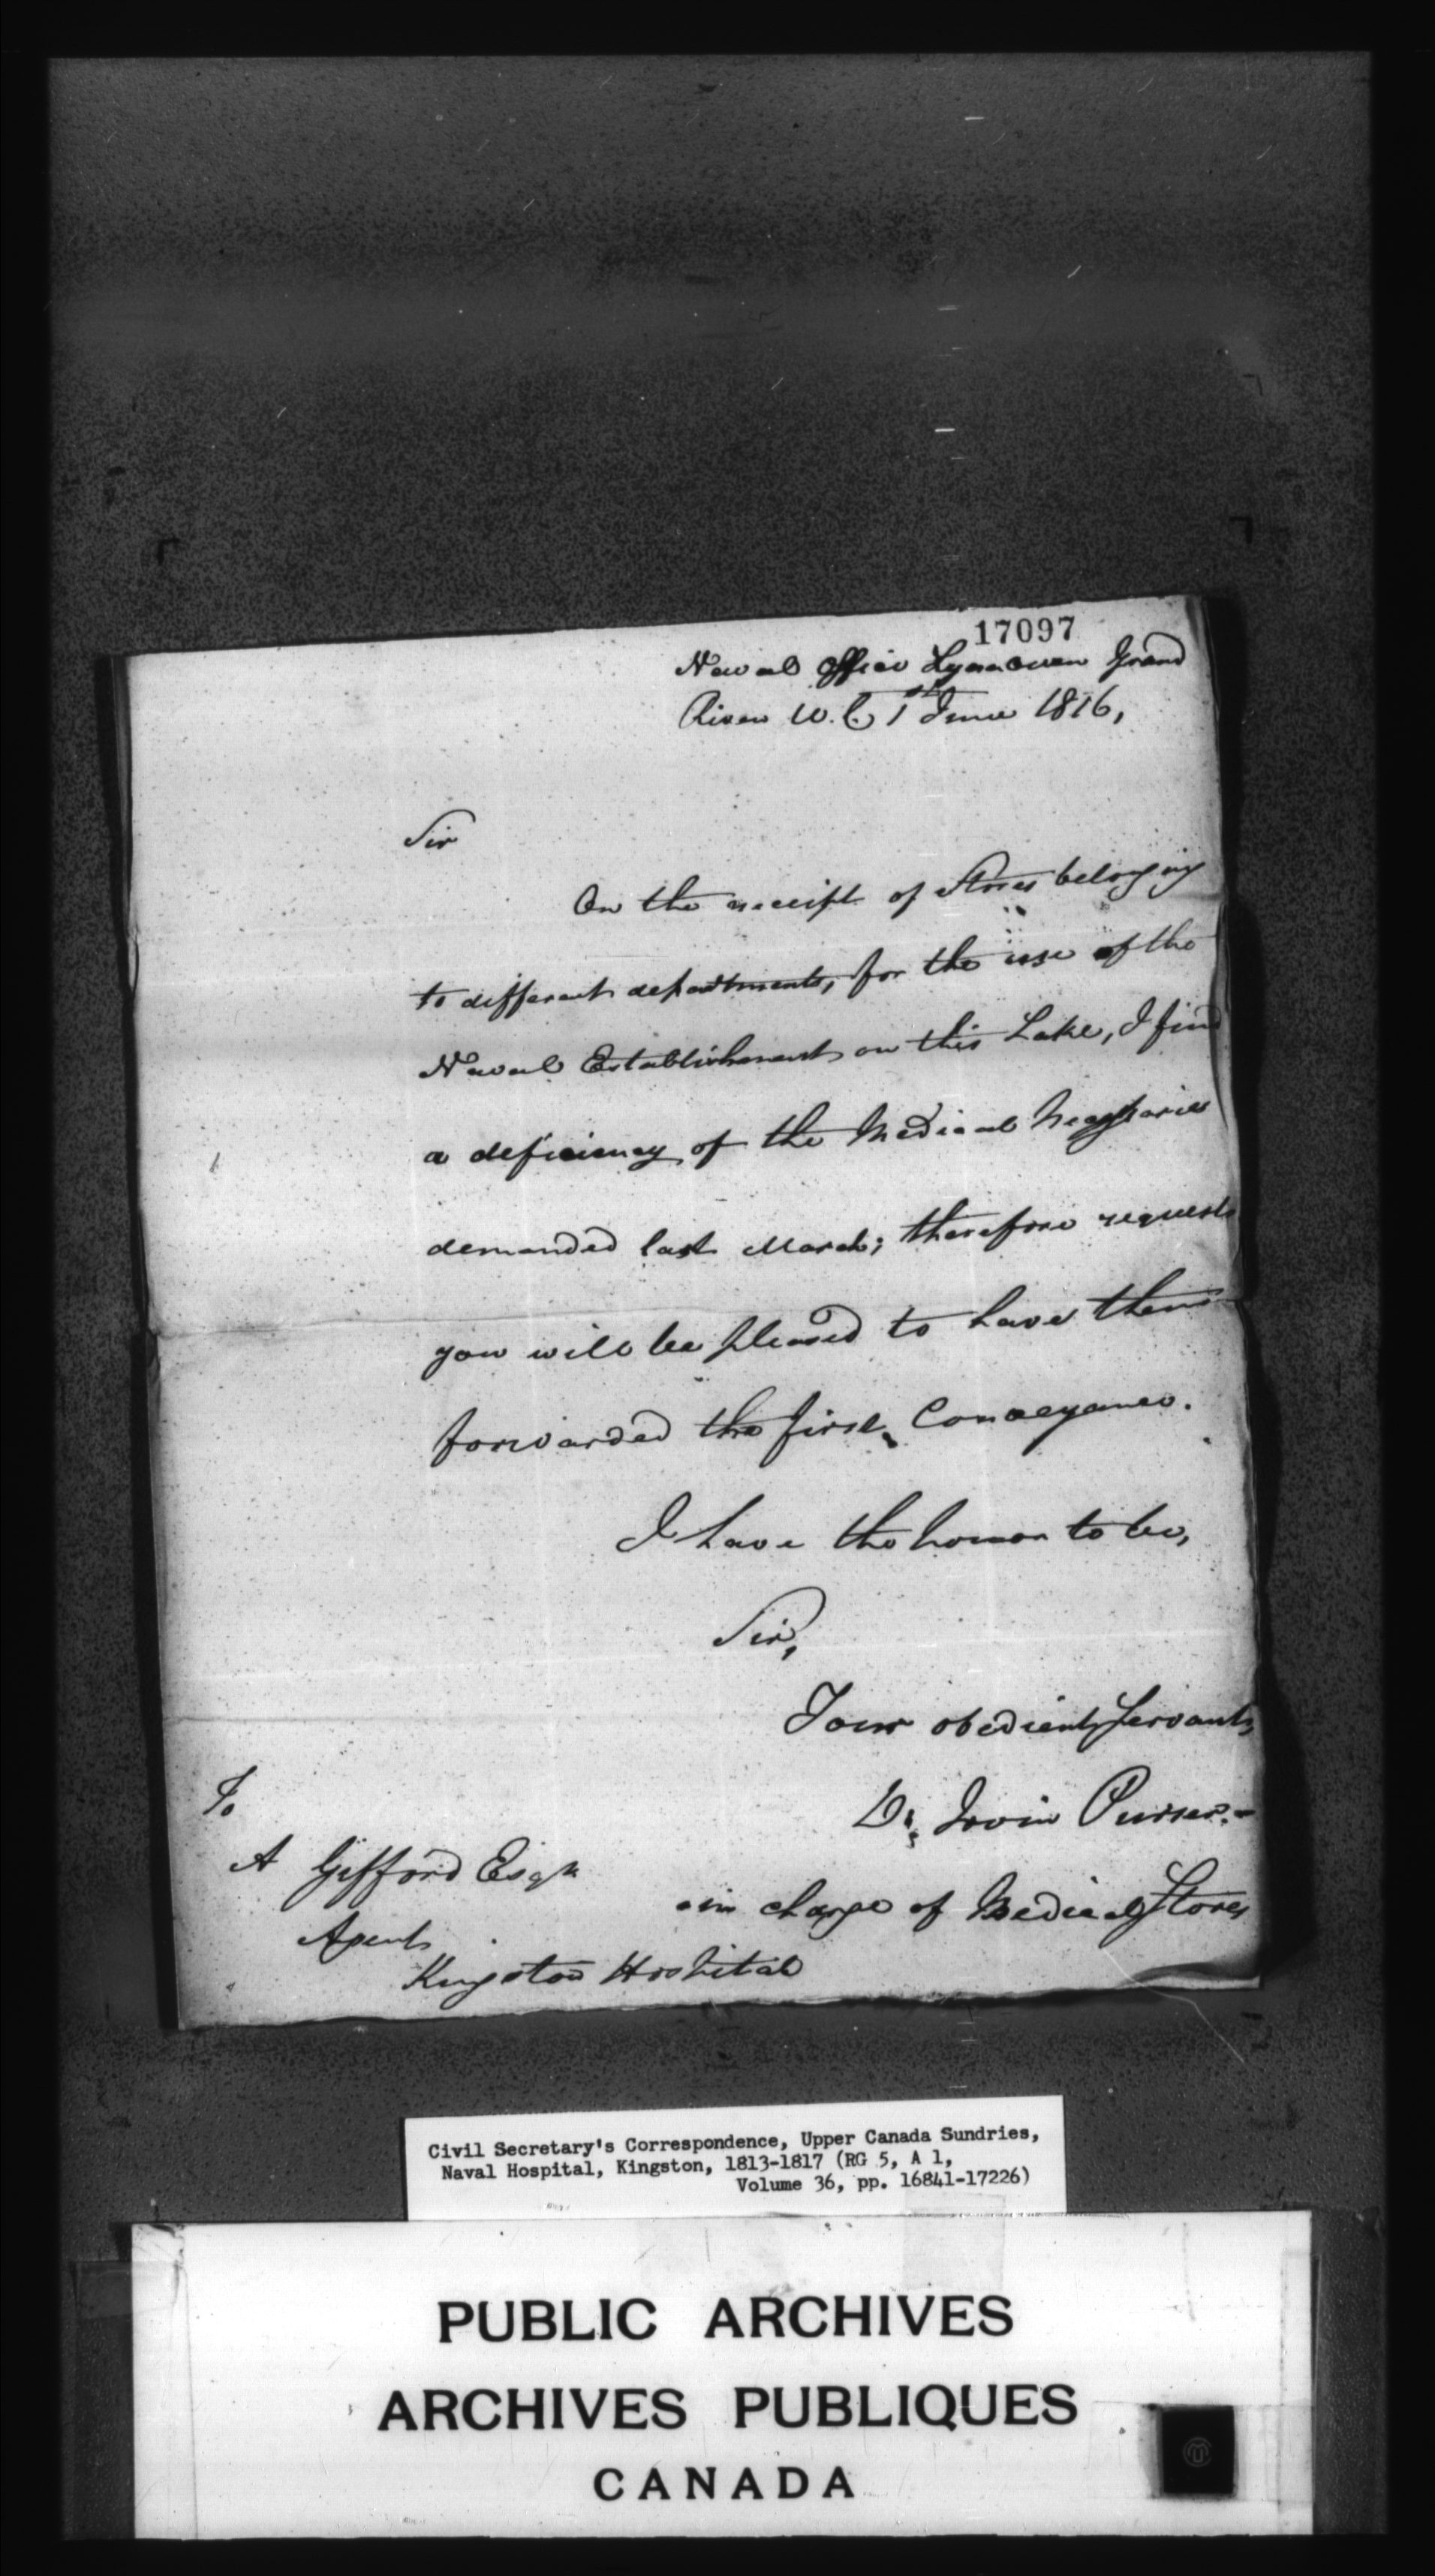 17097
Naval Office Grand
River U.C. 1st June 1816,
Sir
On the receipt of Stores belonging
to different departments, for the use of the
Naval Establishment on this Lake, I find
a deficiency of the Medical Necessaries
demanded last March; therefore request
you will be pleased to have them
forwarded the first Conveyance.
I have the honor to be,
Sir,
Your obedient Servant,
Irvin Purser.
in charge of Medical Stores
To
A Gifford Esqr
Agent
Kingston Hospital
Civil Secretary's Correspondence, Upper Canada Sundries,
Naval Hospital, Kingston, 1813-1817 (RG 5, A 1,
Volume 36, pp. 16841-17226)
PUBLIC ARCHIVES
ARCHIVES PUBLIQUES
CANADA